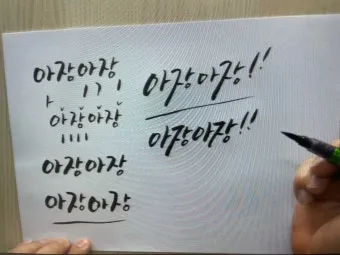 아장아장
아장아장
아장아장
아장아장
아장아장!!
아장아장!!